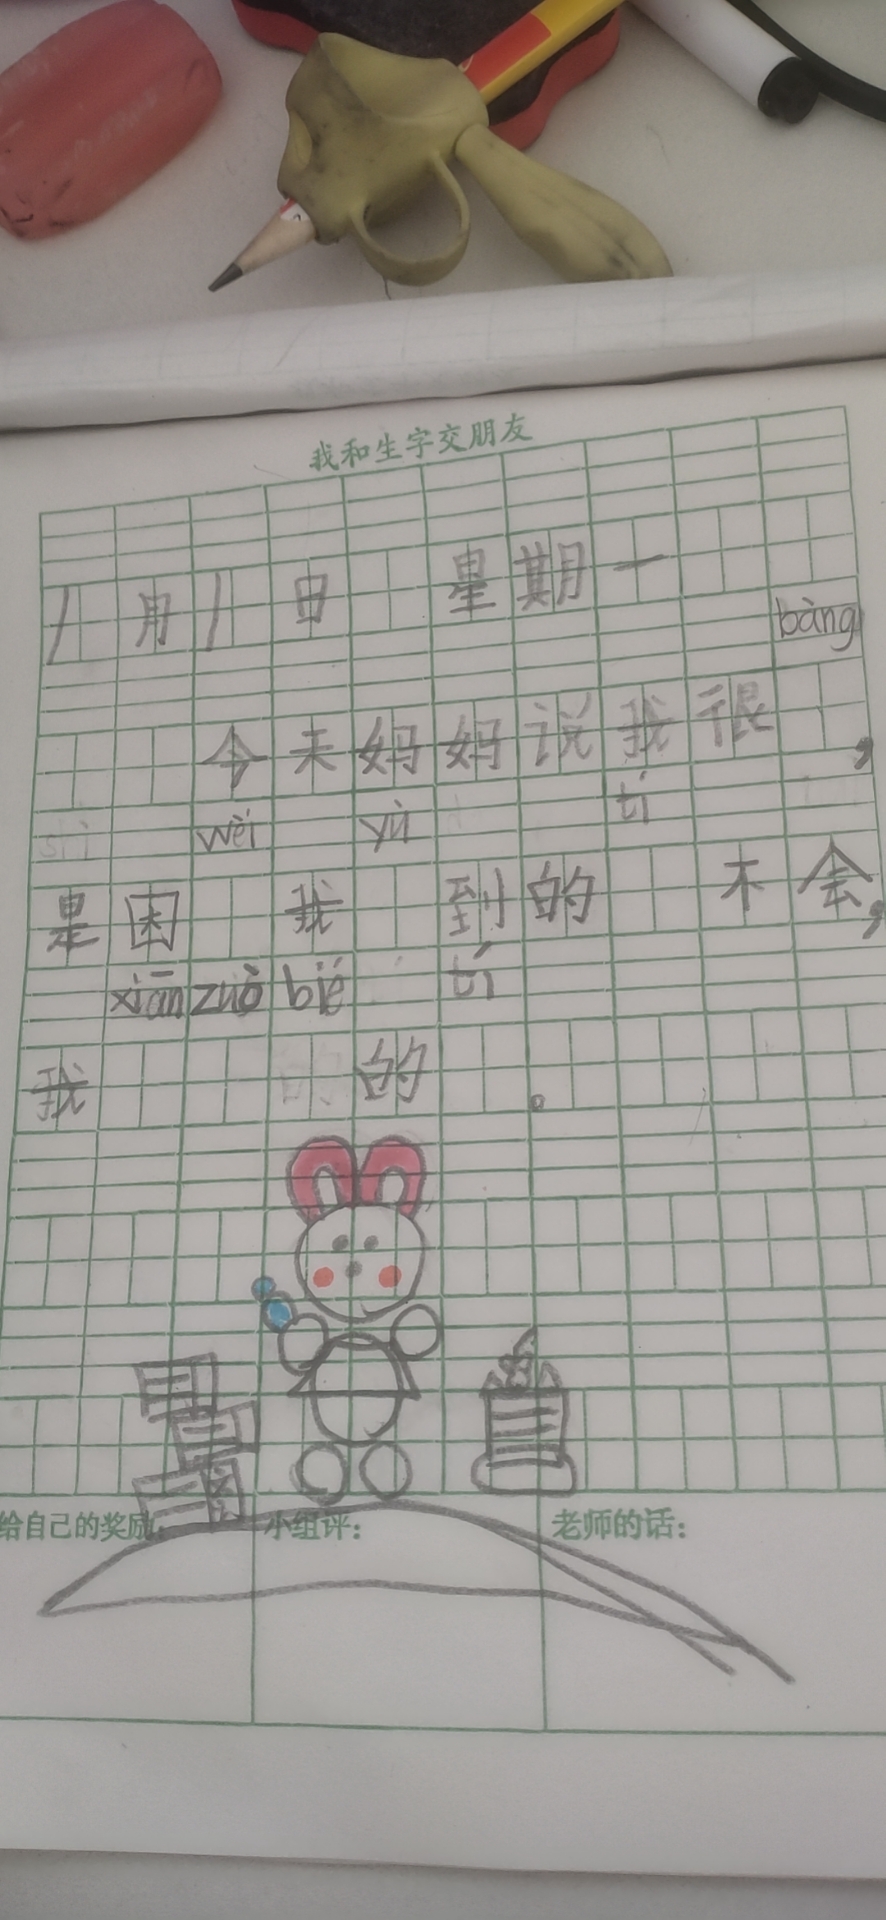 我和生字交朋友
1月1日 星期一
bàng
今天妈妈说我很，
wèi yù tí
是因我到的不会，
xiān zuò bié tí
我的。
给自己的奖励: 小组评: 老师的话: